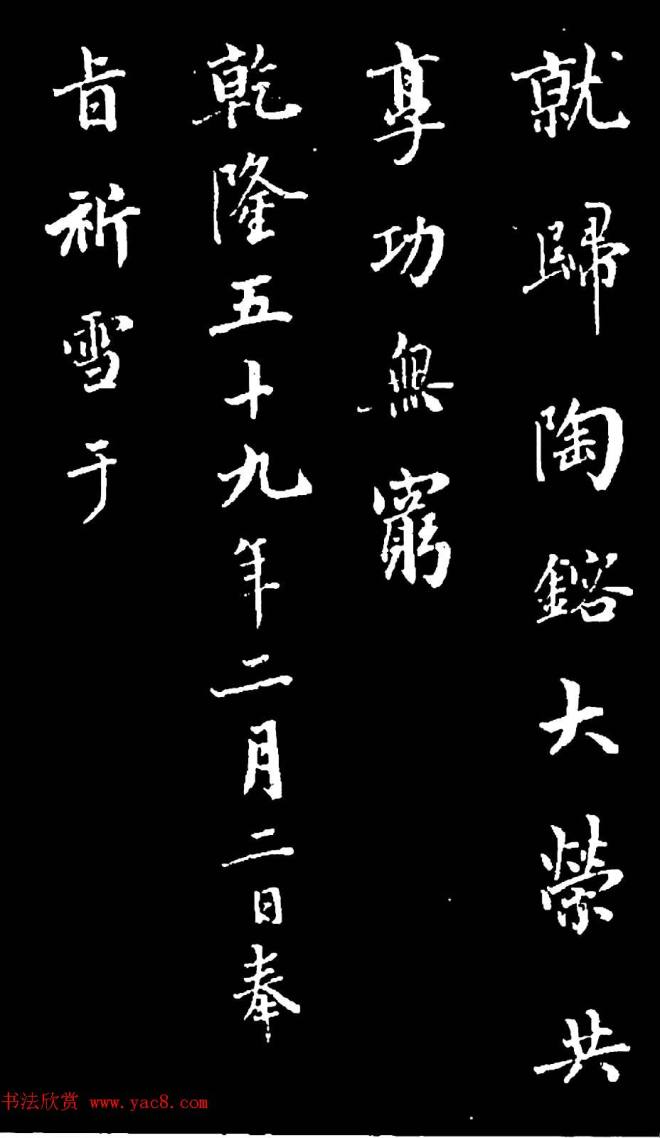 就歸陶鎔大榮共
享功無窮
乾隆五十九年二月二日奉
旨祈雪于
书法欣赏 www.yac8.com